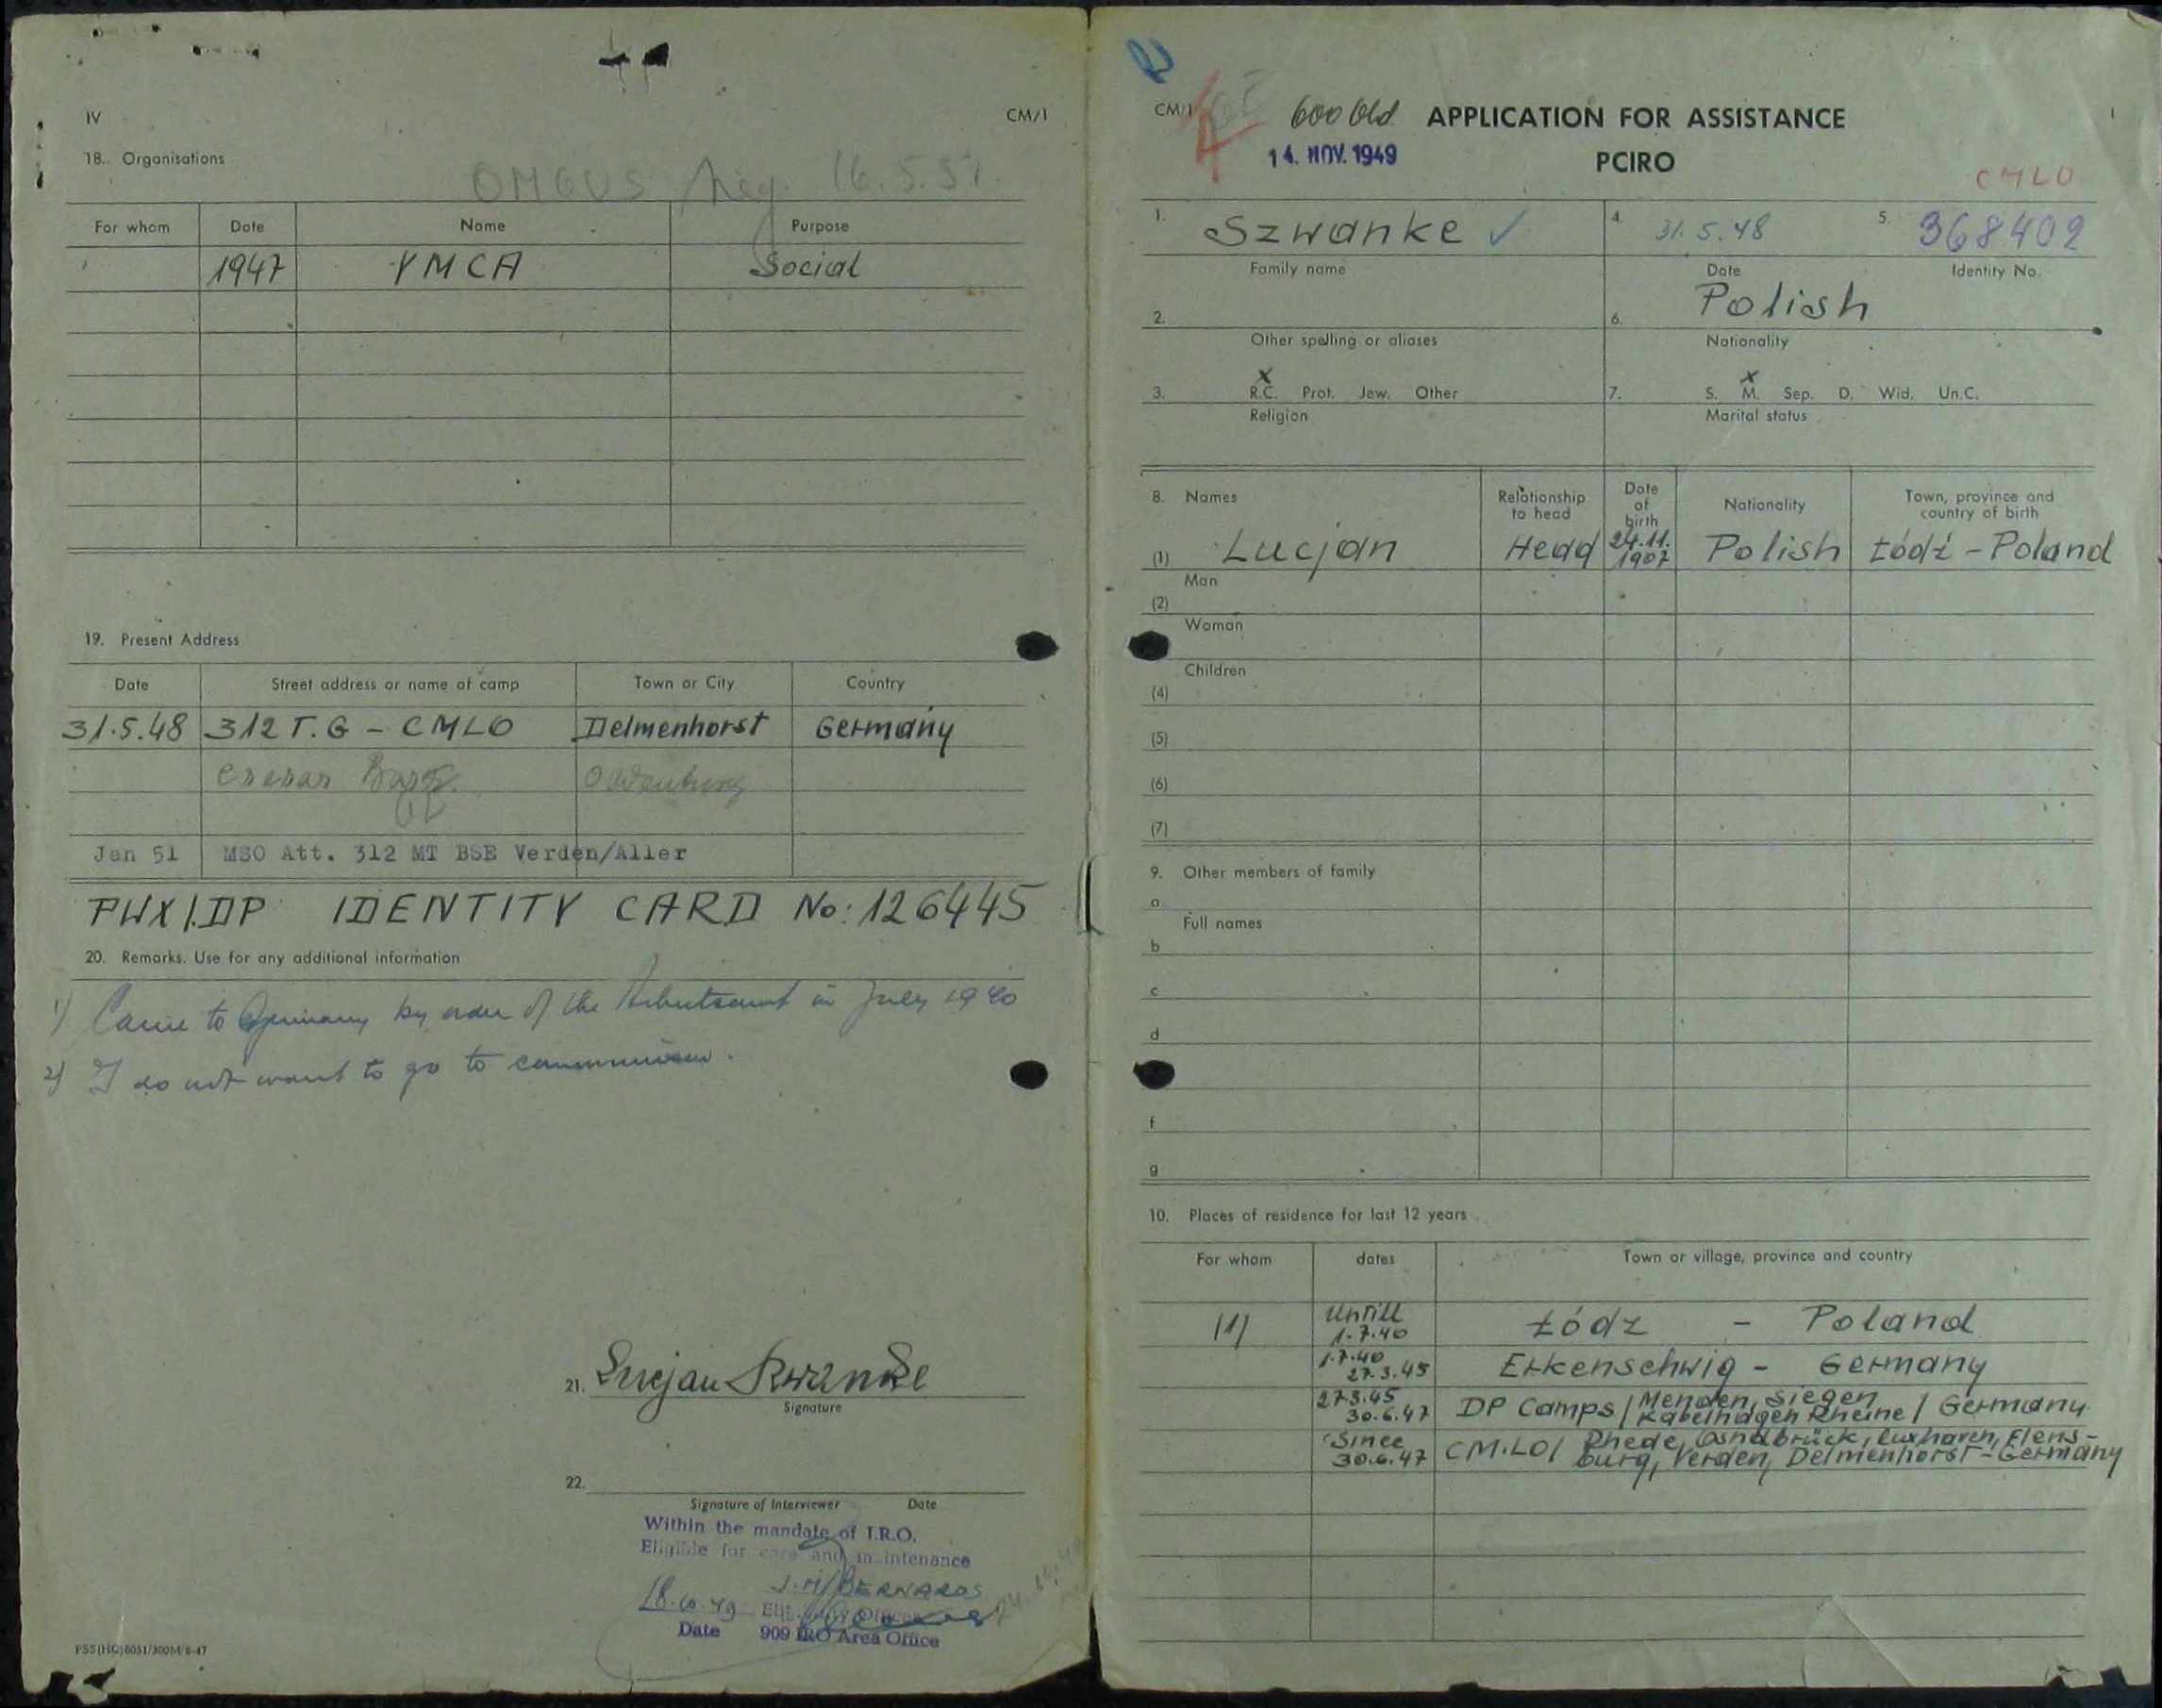 IV
CM/1
18. Organisations
OMGUS Neg. 16.5.51.
For whom Date Name Purpose
1947 YMCA Social
19. Present Address
Date Street address or name of camp Town or City Country
31.5.48 312 T.G - CMLO Delmenhorst Germany
Oldenburg
Jan 51 MSO Att. 312 MT BSE Verden/Aller
PWX/.DP IDENTITY CARD No: 126445
20. Remarks. Use for any additional information
1) Came to Germany by order of the Arbeitsamt in July 1940
2) I do not want to go to communism.
21. Lucjan Szwanke
Signature
22.
Signature of Interviewer Date
Within the mandate of I.R.O.
Eligible for care and maintenance
J.H. BERNARDS
18.10.49
Date 909 IRO Area Office
PSS(HQ)6051/300M/6-47
CM/1 600 Old APPLICATION FOR ASSISTANCE 1
14. NOV. 1949 PCIRO
CMLO
1. Szwanke ✓ 4. 31.5.48 5. 368402
Family name Date Identity No.
2. 6. Polish
Other spelling or aliases Nationality
x x
3. R.C. Prot. Jew. Other 7. S. M. Sep. D. Wid. Un.C.
Religion Marital status
8. Names Relationship to head Date of birth Nationality Town, province and country of birth
(1) Lucjan Head 24.11.1907 Polish Łódź - Poland
Man
(2)
Woman
Children
(4)
(5)
(6)
(7)
9. Other members of family
a
Full names
b
c
d
f
g
10. Places of residence for last 12 years
For whom dates Town or village, province and country
(1) Untill 1.7.40 Łódz - Poland
1.7.40 27.3.45 Erkenschwig - Germany
27.3.45 30.6.47 DP Camps / Menden, Siegen Kabelhagen Rheine / Germany
Since 30.6.47 CM.LO/ Rhede, Osnabrück, Cuxhaven, Flens-
burg, Verden, Delmenhorst - Germany